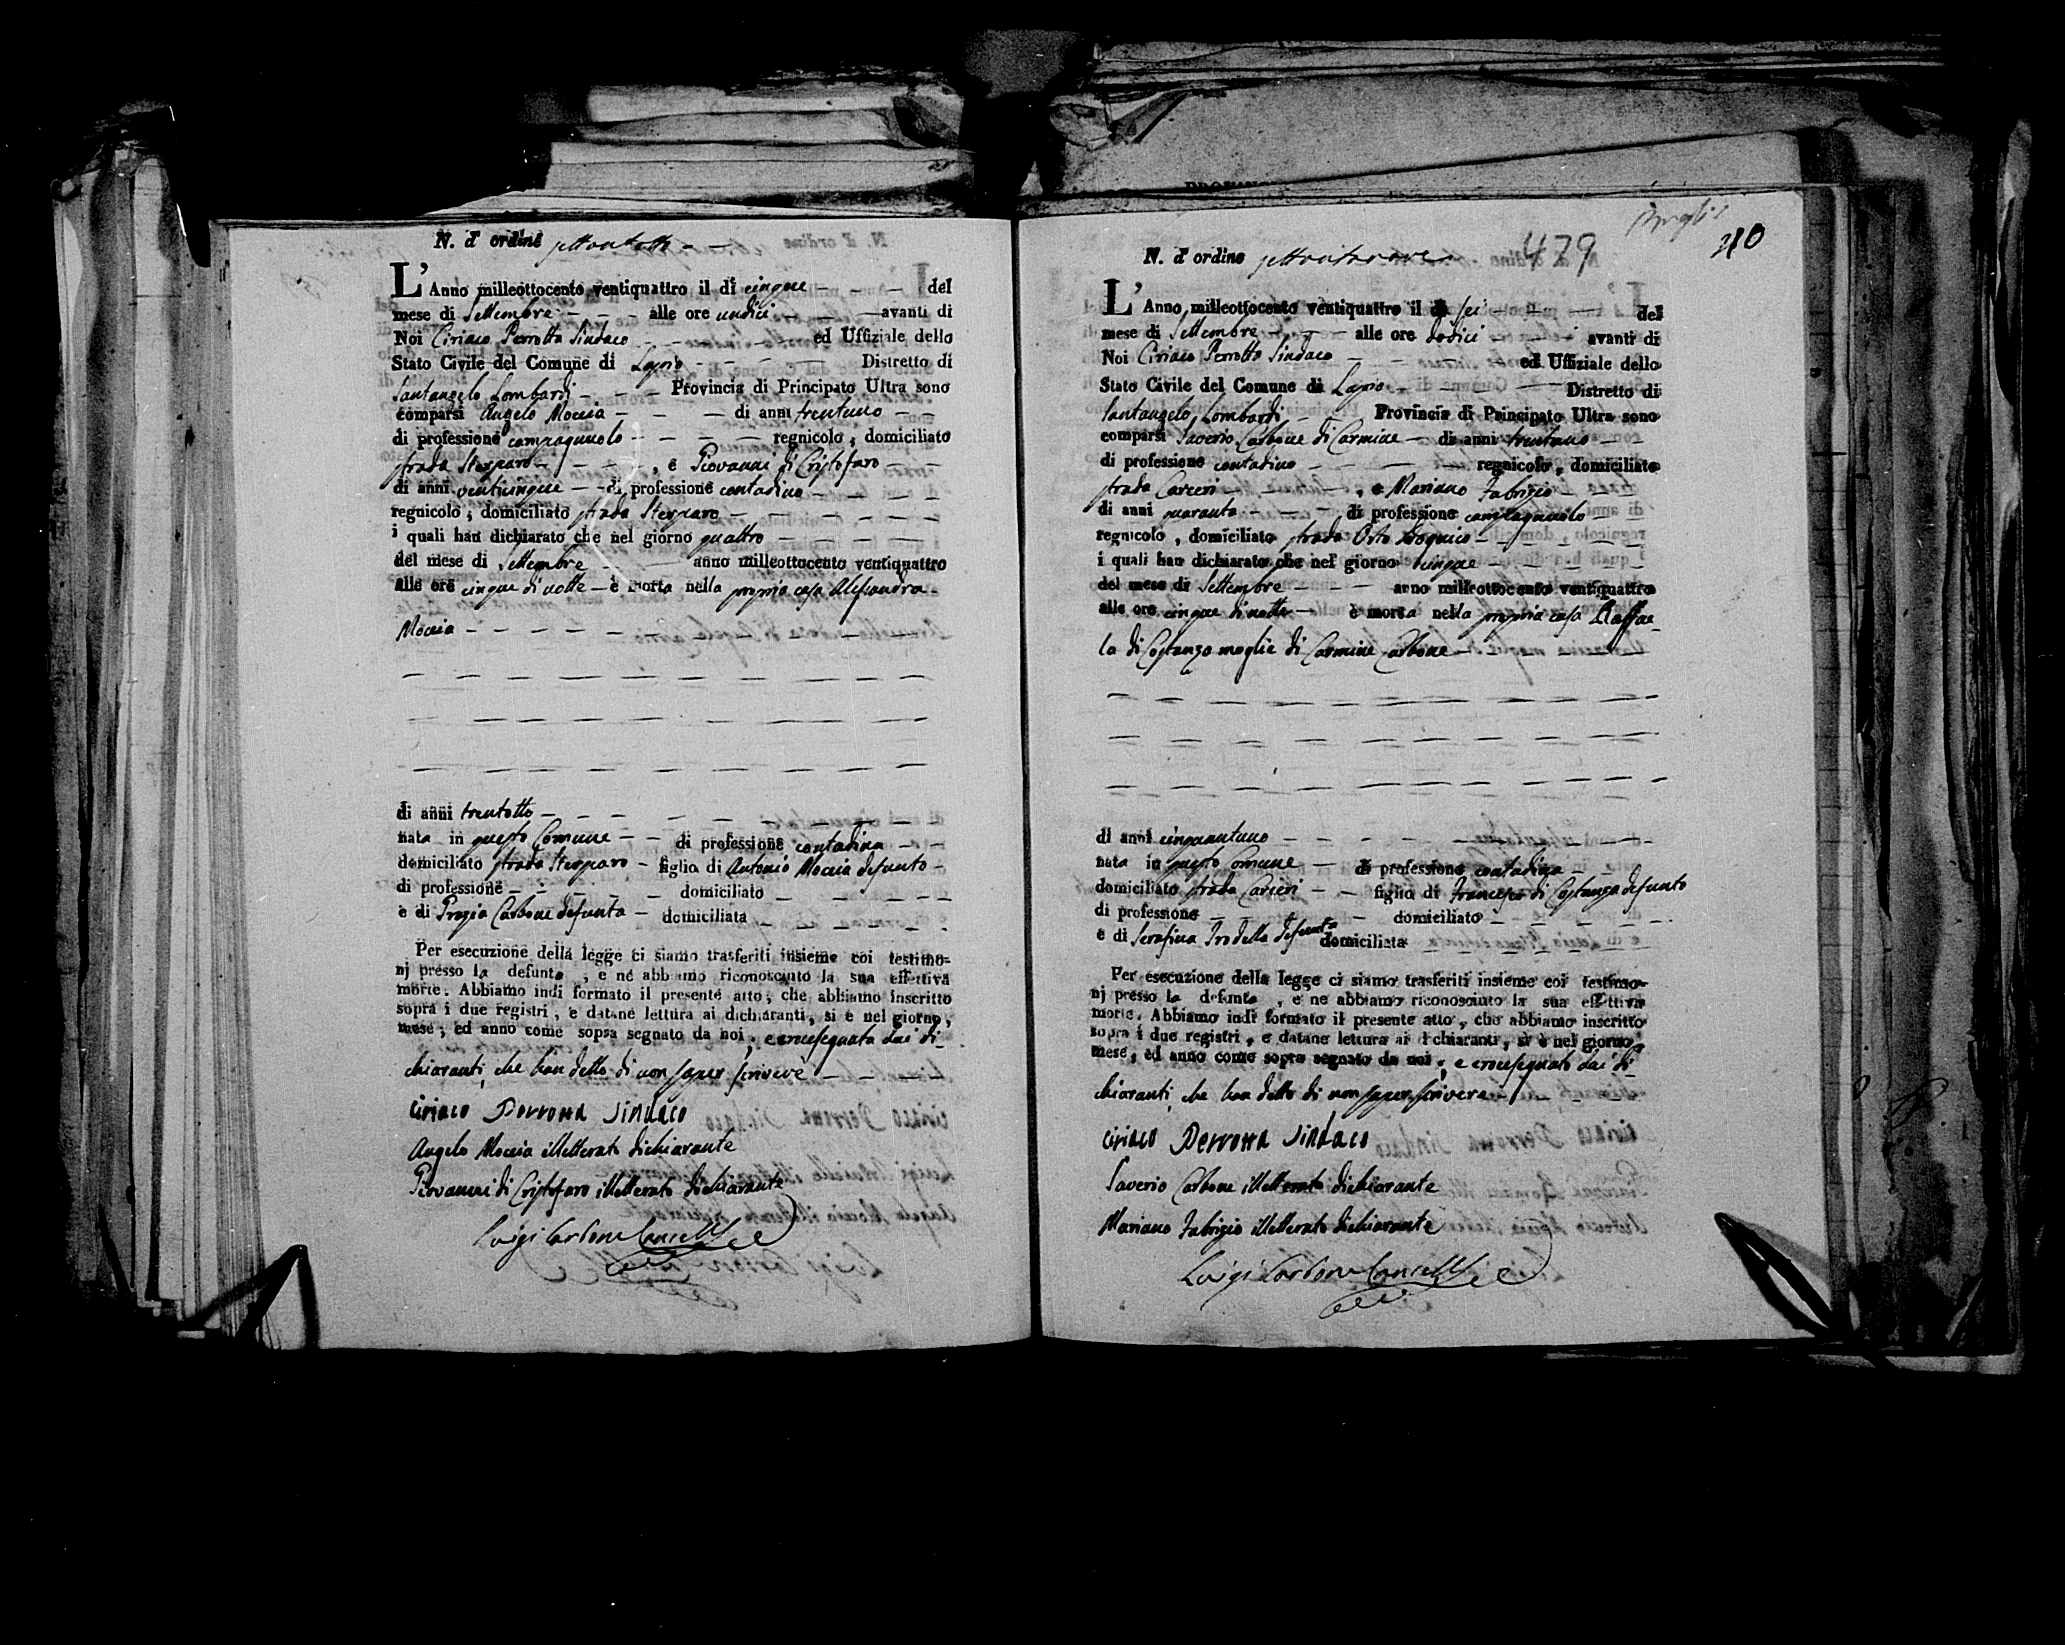 N. d' ordine settantotto
L'Anno milleottocento ventiquattro il dì cinque del
mese di Settembre alle ore undici avanti di
Noi Ciriaco Perrotta Sindaco ed Uffiziale dello
Stato Civile del Comune di Lapio Distretto di
Santangelo Lombardi Provincia di Principato Ultra sono
comparsi Angelo Moccia di anni trentuno
di professione campagnuolo regnicolo, domiciliato
strada Sterparo, e Giovanni di Cristofaro
di anni venticinque di professione contadino
regnicolo, domiciliato strada Sterparo
i quali han dichiarato che nel giorno quattro
del mese di Settembre anno milleottocento ventiquattro
alle ore cinque di notte è morta nella propria casa Alesandra
Moccia
di anni trentotto
nata in questo Comune di professione contadina
domiciliato strada Sterparo figlia di Antonio Moccia defunto
di professione domiciliato
e di Grazia Carbone defunta domiciliata
Per esecuzione della legge ci siamo trasferiti insieme coi testimo-
nj presso la defunta, e ne abbiamo riconosciuto la sua effettiva
morte. Abbiamo indi formato il presente atto, che abbiamo inscritto
sopra i due registri, e datane lettura ai dichiaranti, si è nel giorno,
mese, ed anno come sopra segnato da noi, e crocesegnato dai di-
chiaranti, che han detto di non saper scrivere
Ciriaco Perrotta Sindaco
Angelo Moccia illetterato dichiarante
Giovanni di Cristofaro illetterato dichiarante
Luigi Carbone Cancell
479
210
N. d' ordine settantanove
L'Anno milleottocento ventiquattro il dì sei del
mese di Settembre alle ore dodici avanti di
Noi Ciriaco Perrotta Sindaco ed Uffiziale dello
Stato Civile del Comune di Lapio Distretto di
Santangelo Lombardi Provincia di Principato Ultra sono
comparsi Saverio Carbone di Carmine di anni trentuno
di professione contadino regnicolo, domiciliato
strada Carceri, e Mariano Fabrizio
di anni quaranta di professione campagnuolo
regnicolo, domiciliato strada Orto
i quali han dichiarato che nel giorno cinque
del mese di Settembre anno milleottocento ventiquattro
alle ore cinque di notte è morta nella propria casa Raffae-
la di Costanzo moglie di Carmine Carbone
di anni cinquantuno
nata in questo Comune di professione contadina
domiciliato strada Carceri figlio di Francesco di Costanzo defunto
di professione domiciliato
e di Serafina Trodella defunta domiciliata
Per esecuzione della legge ci siamo trasferiti insieme coi testimo-
nj presso la defunta, e ne abbiamo riconosciuto la sua effettiva
morte. Abbiamo indi formato il presente atto, che abbiamo inscritto
sopra i due registri, e datane lettura ai dichiaranti, si è nel giorno,
mese, ed anno come sopra segnato da noi, e crocesegnato dai di-
chiaranti, che han detto di non saper scrivere
Ciriaco Perrotta Sindaco
Saverio Carbone illetterato dichiarante
Mariano Fabrizio illetterato dichiarante
Luigi Carbone Cancell